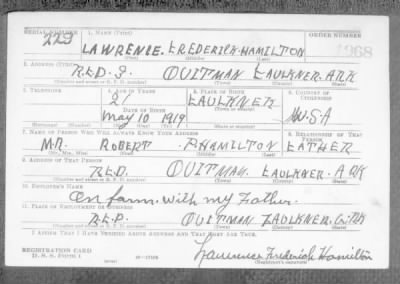 SERIAL NUMBER 1. NAME (Print) ORDER NUMBER
229 LAWRENCE FREDERICK HAMILTON 1968
(First) (Middle) (Last)
2. ADDRESS (Print)
R.F.D. 3. QUITMAN FAULKNER. ARK
(Number and street or R. F. D. number) (Town) (County) (State)
3. TELEPHONE 4. AGE IN YEARS 5. PLACE OF BIRTH 6. COUNTRY OF CITIZENSHIP
21 FAULKNER
DATE OF BIRTH
May 10 1919 U.S.A
(Mo.) (Day) (Yr.)
7. NAME OF PERSON WHO WILL ALWAYS KNOW YOUR ADDRESS 8. RELATIONSHIP OF THAT PERSON
MR. ROBERT P. HAMILTON FATHER
(Mr., Mrs., Miss) (First) (Middle) (Last)
9. ADDRESS OF THAT PERSON
R.F.D. QUITMAN. FAULKNER. ARK
(Number and street or R. F. D. number) (Town) (County) (State)
10. EMPLOYER'S NAME
On farm with my Father.
11. PLACE OF EMPLOYMENT OR BUSINESS
QUITMAN FAULKNER.
(Number and street or R. F. D. number) (Town) (County) (State)
I AFFIRM THAT I HAVE VERIFIED ABOVE ANSWERS AND THAT THEY ARE TRUE.
REGISTRATION CARD
D. S. S. FORM 1
Lawrence Frederick Hamilton
(Registrant's signature)